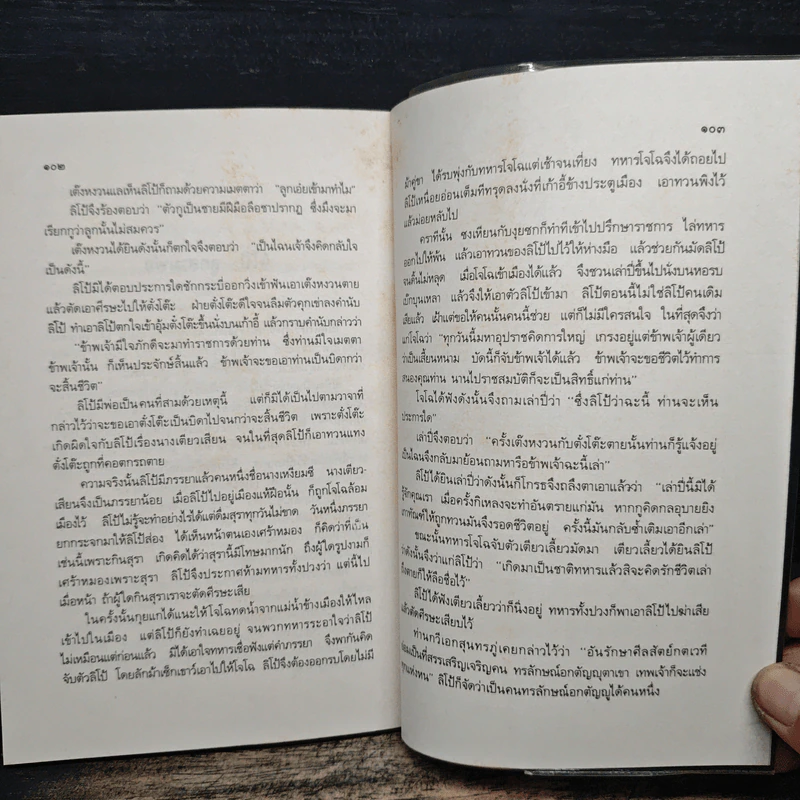 ๑๐๒
เต๊งหงวนแลเห็นลิโป้ก็ถามด้วยความเมตตาว่า "ลูกเอ๋ยเข้ามาทำไม"
ลิโป้จึงร้องตอบว่า "ตัวกูเป็นชายมีฝีมือลือชาปรากฏ ซึ่งมึงจะมา
เรียกกูว่าลูกนั้นไม่สมควร"
เต๊งหงวนได้ยินดังนั้นก็ตกใจจึงตอบว่า "เป็นไฉนเจ้าจึงคิดกลับใจ
เป็นดังนี้"
ลิโป้มิได้ตอบประการใดชักกระบี่ออกวิ่งเข้าฟันเอาเต๊งหงวนตาย
แล้วตัดเอาศีรษะไปให้ตั๋งโต๊ะ ฝ่ายตั๋งโต๊ะดีใจจนลืมตัวคุกเข่าลงคำนับ
ลิโป้ ทำเอาลิโป้ตกใจเข้าอุ้มตั๋งโต๊ะขึ้นนั่งบนเก้าอี้ แล้วกราบคำนับกล่าวว่า
"ข้าพเจ้ามีใจภักดีจะมาทำราชการด้วยท่าน ซึ่งท่านมีใจเมตตา
ข้าพเจ้านั้น ก็เห็นประจักษ์สิ้นแล้ว ข้าพเจ้าจะขอเอาท่านเป็นบิดากว่า
จะสิ้นชีวิต"
ลิโป้มีพ่อเป็นคนที่สามด้วยเหตุนี้ แต่ก็มิได้เป็นไปตามวาจาที่
กล่าวไว้ว่าจะขอเอาตั๋งโต๊ะเป็นบิดาไปจนกว่าจะสิ้นชีวิต เพราะตั๋งโต๊ะ
เกิดผิดใจกับลิโป้เรื่องนางเตียวเสียน จนในที่สุดลิโป้ก็เอาทวนแทง
ตั๋งโต๊ะถูกที่คอตกรถตาย
ความจริงนั้นลิโป้มีภรรยาแล้วคนหนึ่งชื่อนางเหงียมซี นางเตียว-
เสียนจึงเป็นภรรยาน้อย เมื่อลิโป้ไปอยู่เมืองแห้ฝือนั้น ก็ถูกโจโฉล้อม
เมืองไว้ ลิโป้ไม่รู้จะทำอย่างไรได้แต่ดื่มสุราทุกวันไม่ขาด วันหนึ่งภรรยา
ยกกระจกมาให้ลิโป้ส่อง ได้เห็นหน้าตนเองเศร้าหมอง ก็คิดว่าที่เป็น
เช่นนี้เพราะกินสุรา เกิดคิดได้ว่าสุรานี้มีโทษมากนัก ถึงผู้ใดรูปงามก็
เศร้าหมองเพราะสุรา ลิโป้จึงประกาศห้ามทหารทั้งปวงว่า แต่นี้ไป
เมื่อหน้า ถ้าผู้ใดกินสุราเราจะตัดศีรษะเสีย
ในครั้งนั้นกุยแกได้แนะให้โจโฉทดน้ำจากแม่น้ำข้างเมืองให้ไหล
เข้าไปในเมือง แต่ลิโป้ก็ยังทำเฉยอยู่ จนพวกทหารระอาใจว่าลิโป้
ไม่เหมือนแต่ก่อนแล้ว มิได้เอาใจทหารเชื่อฟังแต่คำภรรยา จึงพากันคิด
จับตัวลิโป้ โดยลักม้าเซ็กเธาว์เอาไปให้โจโฉ ลิโป้จึงต้องออกรบโดยไม่มี
๑๐๓
ม้าคู่ขา ได้รบพุ่งกับทหารโจโฉแต่เช้าจนเที่ยง ทหารโจโฉจึงได้ถอยไป
ลิโป้เหนื่อยอ่อนเต็มทีทรุดลงนั่งที่เก้าอี้ข้างประตูเมือง เอาทวนพิงไว้
แล้วม่อยหลับไป
คราทีนั้น ซงเหียนกับงุยซกก็ทำทีเข้าไปปรึกษาราชการ ไล่ทหาร
ออกไปให้พ้น แล้วเอาทวนของลิโป้ไปไว้ให้ห่างมือ แล้วช่วยกันมัดลิโป้
จนดิ้นไม่หลุด เมื่อโจโฉเข้าเมืองได้แล้ว จึงชวนเล่าปี่ขึ้นไปนั่งบนหอรบ
แป๊กบุนเหลา แล้วจึงให้เอาตัวลิโป้เข้ามา ลิโป้ตอนนี้ไม่ใช่ลิโป้คนเดิม
เสียแล้ว เฝ้าแต่ขอให้คนนั้นคนนี้ช่วย แต่ก็ไม่มีใครสนใจ ในที่สุดจึงว่า
แก่โจโฉว่า "ทุกวันนี้มหาอุปราชคิดการใหญ่ เกรงอยู่แต่ข้าพเจ้าผู้เดียว
ว่าเป็นเสี้ยนหนาม บัดนี้ก็จับข้าพเจ้าได้แล้ว ข้าพเจ้าจะขอชีวิตไว้ทำการ
สนองคุณท่าน นานไปราชสมบัติก็จะเป็นสิทธิ์แก่ท่าน"
โจโฉได้ฟังดังนั้นจึงถามเล่าปี่ว่า "ซึ่งลิโป้ว่าฉะนี้ ท่านจะเห็น
ประการใด"
เล่าปี่จึงตอบว่า "ครั้งเต๊งหงวนกับตั๋งโต๊ะตายนั้นท่านก็รู้แจ้งอยู่
เป็นไฉนจึงกลับมาย้อนถามหารือข้าพเจ้าฉะนี้เล่า"
ลิโป้ได้ยินเล่าปี่ว่าดังนั้นก็โกรธจึงถลึงตาเอาแล้วว่า "เล่าปี่นี้มิได้
รู้จักคุณเรา เมื่อครั้งกิเหลงจะทำอันตรายแก่มัน หากกูคิดกลอุบายยิง
เกาทัณฑ์ให้ถูกทวนมันจึงรอดชีวิตอยู่ ครั้งนี้มันกลับซ้ำเติมเอาอีกเล่า"
ขณะนั้นทหารโจโฉจับตัวเตียวเลี้ยวมัดมา เตียวเลี้ยวได้ยินลิโป้
ว่าดังนั้นจึงว่าแก่ลิโป้ว่า "เกิดมาเป็นชาติทหารแล้วสิจะคิดรักชีวิตเล่า
ถึงตายก็ให้ลือชื่อไว้"
ลิโป้ได้ฟังเตียวเลี้ยวว่าก็นิ่งอยู่ ทหารทั้งปวงก็พาเอาลิโป้ไปฆ่าเสีย
แล้วตัดศีรษะเสียบไว้
ท่านกวีเอกสุนทรภู่เคยกล่าวไว้ว่า "อันรักษาศีลสัตย์กตเวที
ย่อมเป็นที่สรรเสริญเจริญคน ทรลักษณ์อกตัญญุตาเขา เทพเจ้าก็จะแช่ง
ทุกแห่งหน" ลิโป้ก็จัดว่าเป็นคนทรลักษณ์อกตัญญูได้คนหนึ่ง